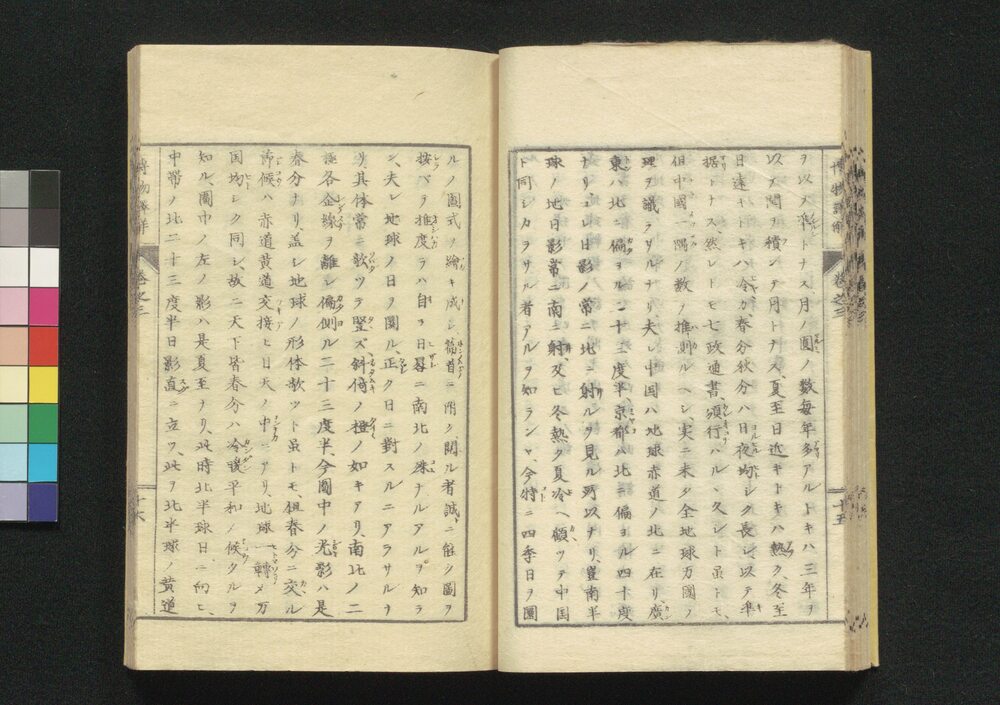 ヲ以ス準トナス月ノ圓ノ数毎年多アルトキハ三年ヲ
以ス閏ヲ積シテ月トナス、夏至日近キトキハ熱ク、冬至
日遠キトキハ冷カ、春分秋分ハ日夜均シク長シ、以テ準
据トナス、然レトモ七政通書、頒行ハル丶久シト虽トモ、
但中國一隅ノ数ノ推測ルヘシ、実ニ未タ全地球万國ノ
理ヲ議ラサルナリ、夫レ中国ハ地球赤道ノ北ニ在リ、廣
東ハ北ニ偏ヨル二十三度半、京都ハ北ニ偏ヨル四十度
ナリ、コレ日影ノ常ニ北ニ射ルヲ見ル所以ナリ、豈南半
球ノ地日影常ニ南ニ射、又ヒ冬熱ク夏冷ヘ、顧ツテ中国
ト同シカラサル者アルヲ知ランヤ、今特ニ四季日ヲ圜
博物
巻之三
十五
ルノ圖式ヲ繪キ成シ篇首ニ附ク閲ル者誠ニ能ク圖ヲ
按ベテ推度ラハ自ラ日晷ニ南北ノ殊ナルアルヲ知ラ
ン、夫レ地球ノ日ヲ圜ル、正ク日ニ對スルニアラサルナ
リ其体常ニ欹ツテ竪ズ斜倚ノ橙ノ如キアリ、南北ノ二
極各企線ヲ離レ偏側ル二十三度半、今圖中ノ光影ハ是
春分ナリ蓋シ地球ノ形体欹ツト虽トモ、但春分ニ交ル
節候ハ赤道黄道交接ヒ日天ノ中ニアリ、地球一轉メ万
国均シク同シ、故ニ天下皆春分ハ冷暖平和ノ候タルヲ
知ル、圖中ノ左ノ影ハ是夏至ナリ、此時北半球日ニ向ヒ、
中帯ノ北二十三度半日影直ニ立ツ、此ヲ北半球ノ黄道
博物
巻之三
十六